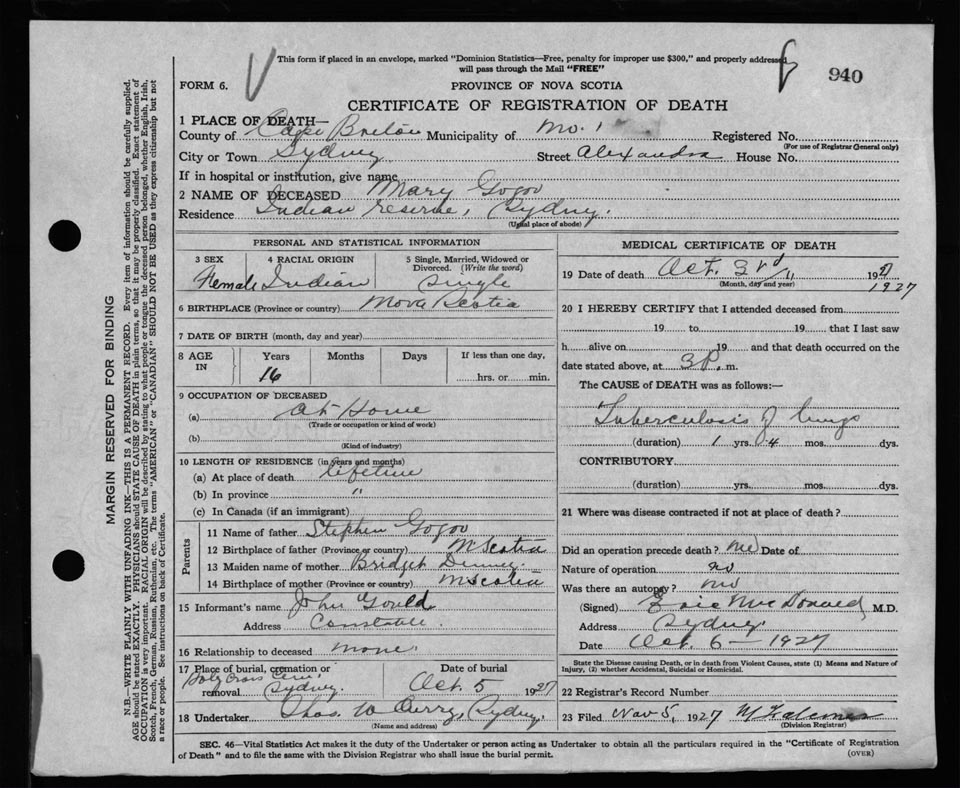 This form if placed in an envelope, marked "Dominion Statistics—Free, penalty for improper use $300," and properly addressed
will pass through the Mail "FREE"
940
FORM 6.
PROVINCE OF NOVA SCOTIA
CERTIFICATE OF REGISTRATION OF DEATH
1 PLACE OF DEATH—
County of Cape Breton Municipality of No. 1 Registered No.
(For use of Registrar General only)
City or Town Sydney Street Alexandra House No.
If in hospital or institution, give name
2 NAME OF DECEASED Mary Gogoo
Residence Indian reserve, Sydney.
(Usual place of abode)
PERSONAL AND STATISTICAL INFORMATION
3 SEX 4 RACIAL ORIGIN 5 Single, Married, Widowed or
Divorced. (Write the word)
Female Indian Single
6 BIRTHPLACE (Province or country) Nova Scotia
7 DATE OF BIRTH (month, day and year)
8 AGE IN Years Months Days If less than one day,
16 hrs. or min.
9 OCCUPATION OF DECEASED
(a) At Home
(Trade or occupation or kind of work)
(b)
(Kind of industry)
10 LENGTH OF RESIDENCE (in years and months)
(a) At place of death lifetime
(b) In province "
(c) In Canada (if an immigrant)
Parents
11 Name of father Stephen Gogoo
12 Birthplace of father (Province or country) N Scotia
13 Maiden name of mother Bridget Denney
14 Birthplace of mother (Province or country) N Scotia
15 Informant's name John Gould
Address Constable.
16 Relationship to deceased none.
17 Place of burial, cremation or Date of burial
Holy Cross Cem.
removal Sydney. Oct. 5 1927
18 Undertaker Thos. W Curry, Sydney.
(Name and address)
MEDICAL CERTIFICATE OF DEATH
19 Date of death Oct. 3rd 192
(Month, day and year)
1927
20 I HEREBY CERTIFY that I attended deceased from
19 to 19 that I last saw
h alive on 19 and that death occurred on the
date stated above, at 3 P. m.
The CAUSE of DEATH was as follows:—
Tuberculosis of lungs
(duration) 1 yrs. 4 mos. dys.
CONTRIBUTORY
(duration) yrs. mos. dys.
21 Where was disease contracted if not at place of death?
Did an operation precede death? no Date of
Nature of operation no
Was there an autopsy? no
(Signed) Eric MacDonald M.D.
Address Sydney.
Date Oct. 6 — 1927
State the Disease causing Death, or in death from Violent Causes, state (1) Means and Nature of
Injury, (2) whether Accidental, Suicidal or Homicidal.
22 Registrar's Record Number
23 Filed Nov 5, 1927
(Division Registrar)
SEC. 46—Vital Statistics Act makes it the duty of the Undertaker or person acting as Undertaker to obtain all the particulars required in the "Certificate of Registration
of Death" and to file the same with the Division Registrar who shall issue the burial permit.
(OVER)
MARGIN RESERVED FOR BINDING
N.B.—WRITE PLAINLY WITH UNFADING INK—THIS IS A PERMANENT RECORD. Every item of information should be carefully supplied.
AGE should be stated EXACTLY. PHYSICIANS should STATE CAUSE OF DEATH in plain terms, so that it may be properly classified. Exact statement of
OCCUPATION is very important. RACIAL ORIGIN will be described by stating to what people or tongue the deceased person belonged, whether English, Irish,
Scotch, French, German, Russian, Ruthenian, etc. The terms "AMERICAN" or "CANADIAN" SHOULD NOT BE USED as they express citizenship but not
a race or people. See instructions on back of Certificate.